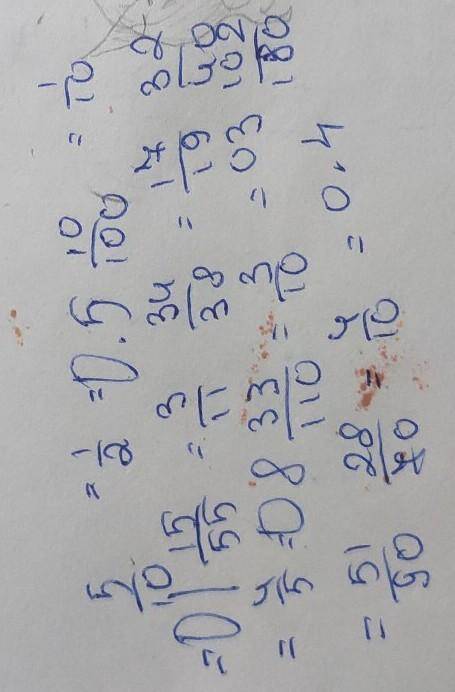 5/10 = 1/2 = 0.5 10/100 = 1/10
= 01 15/55 = 3/11 34/38 = 17/19 32/40
= 4/5 = 08 33/110 = 3/10 = 03 102/180
= 51/90 28/70 = 4/10 = 0.4